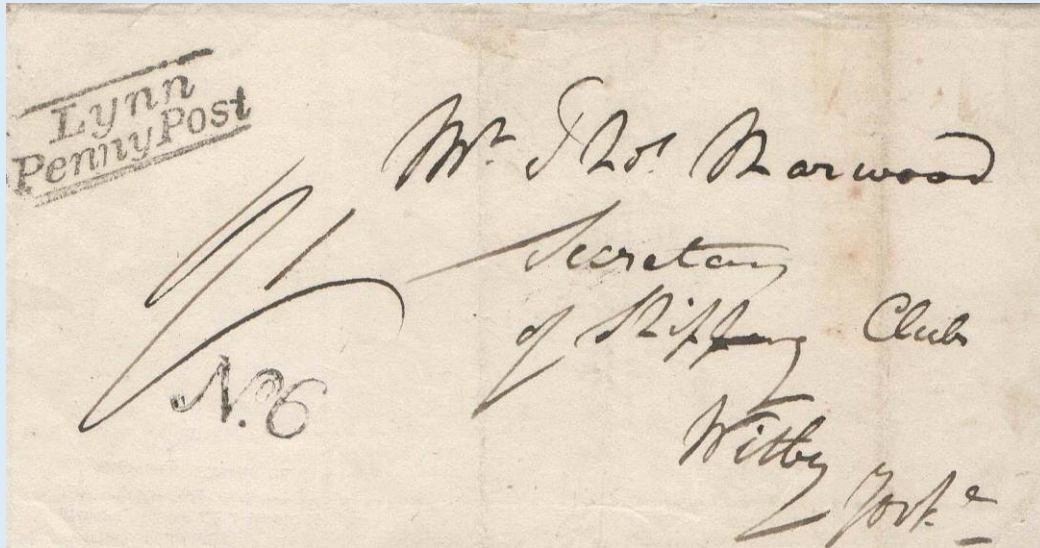 Lynn
Penny Post
Mr. Thos. Marwood
Secretary
of Shipping Club
Witby
Yorke
No. 6